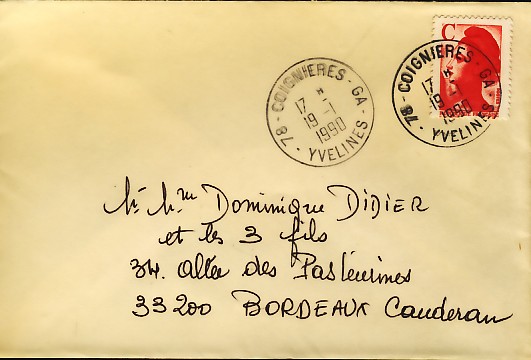 C
78 - COIGNIERES - GA - YVELINES
17 *
19 - 1
1990
78 - COIGNIERES - GA - YVELINES
17 *
19 - 1
1990
Mr Mme Dominique DIDIER
et les 3 fils
34. allée des
33200 BORDEAUX Caudéran